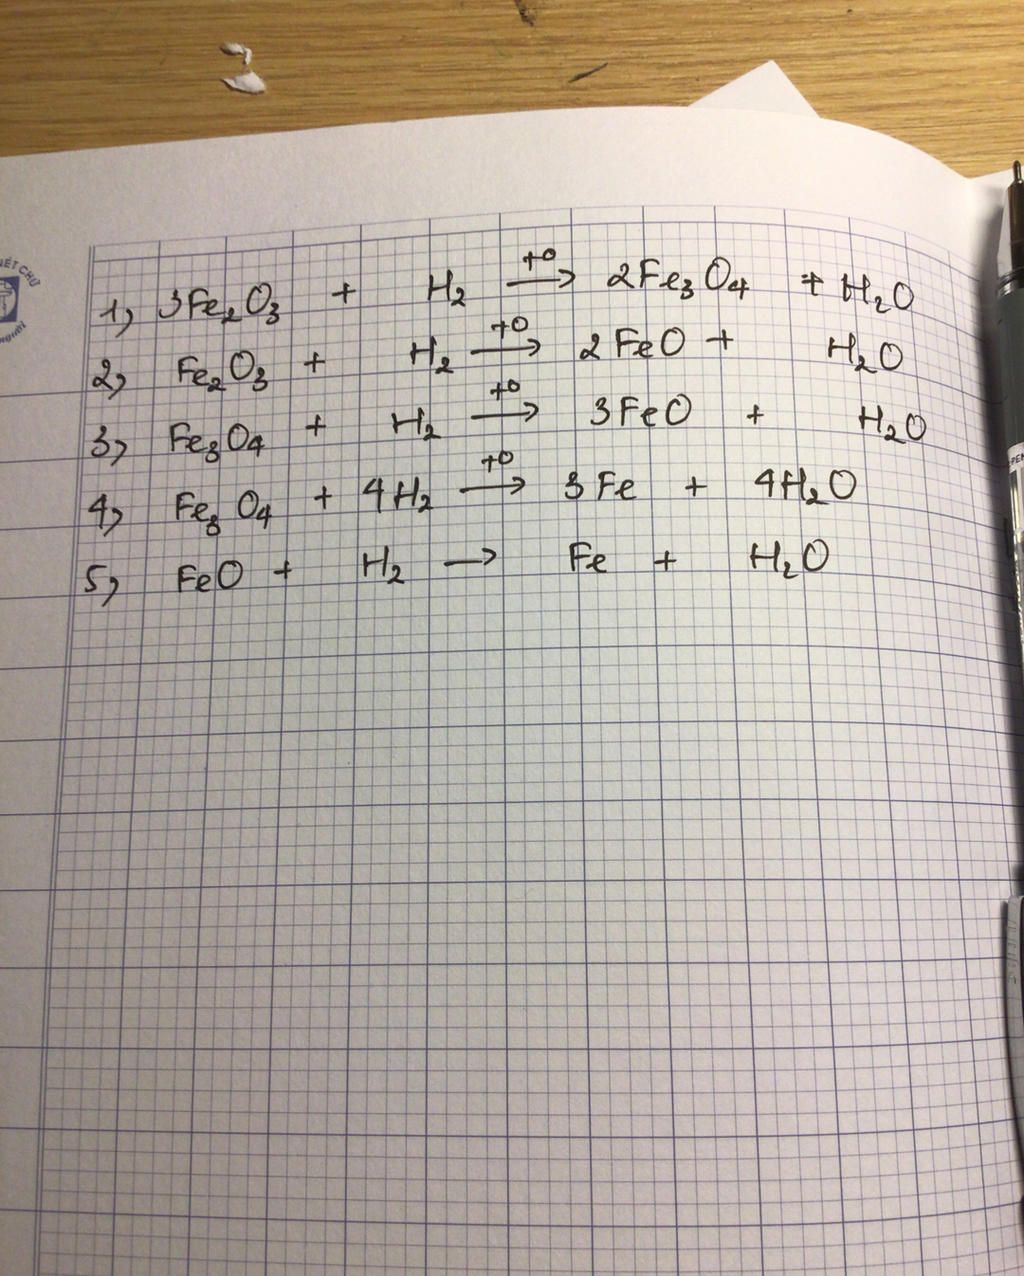 1, 3Fe₂O₃ + H₂ →(t⁰) 2Fe₃O₄ + H₂O
2, Fe₂O₃ + H₂ →(t⁰) 2FeO + H₂O
3, Fe₃O₄ + H₂ →(t⁰) 3FeO + H₂O
4, Fe₃O₄ + 4H₂ →(t⁰) 3Fe + 4H₂O
5, FeO + H₂ → Fe + H₂O
NÉT CHỮ